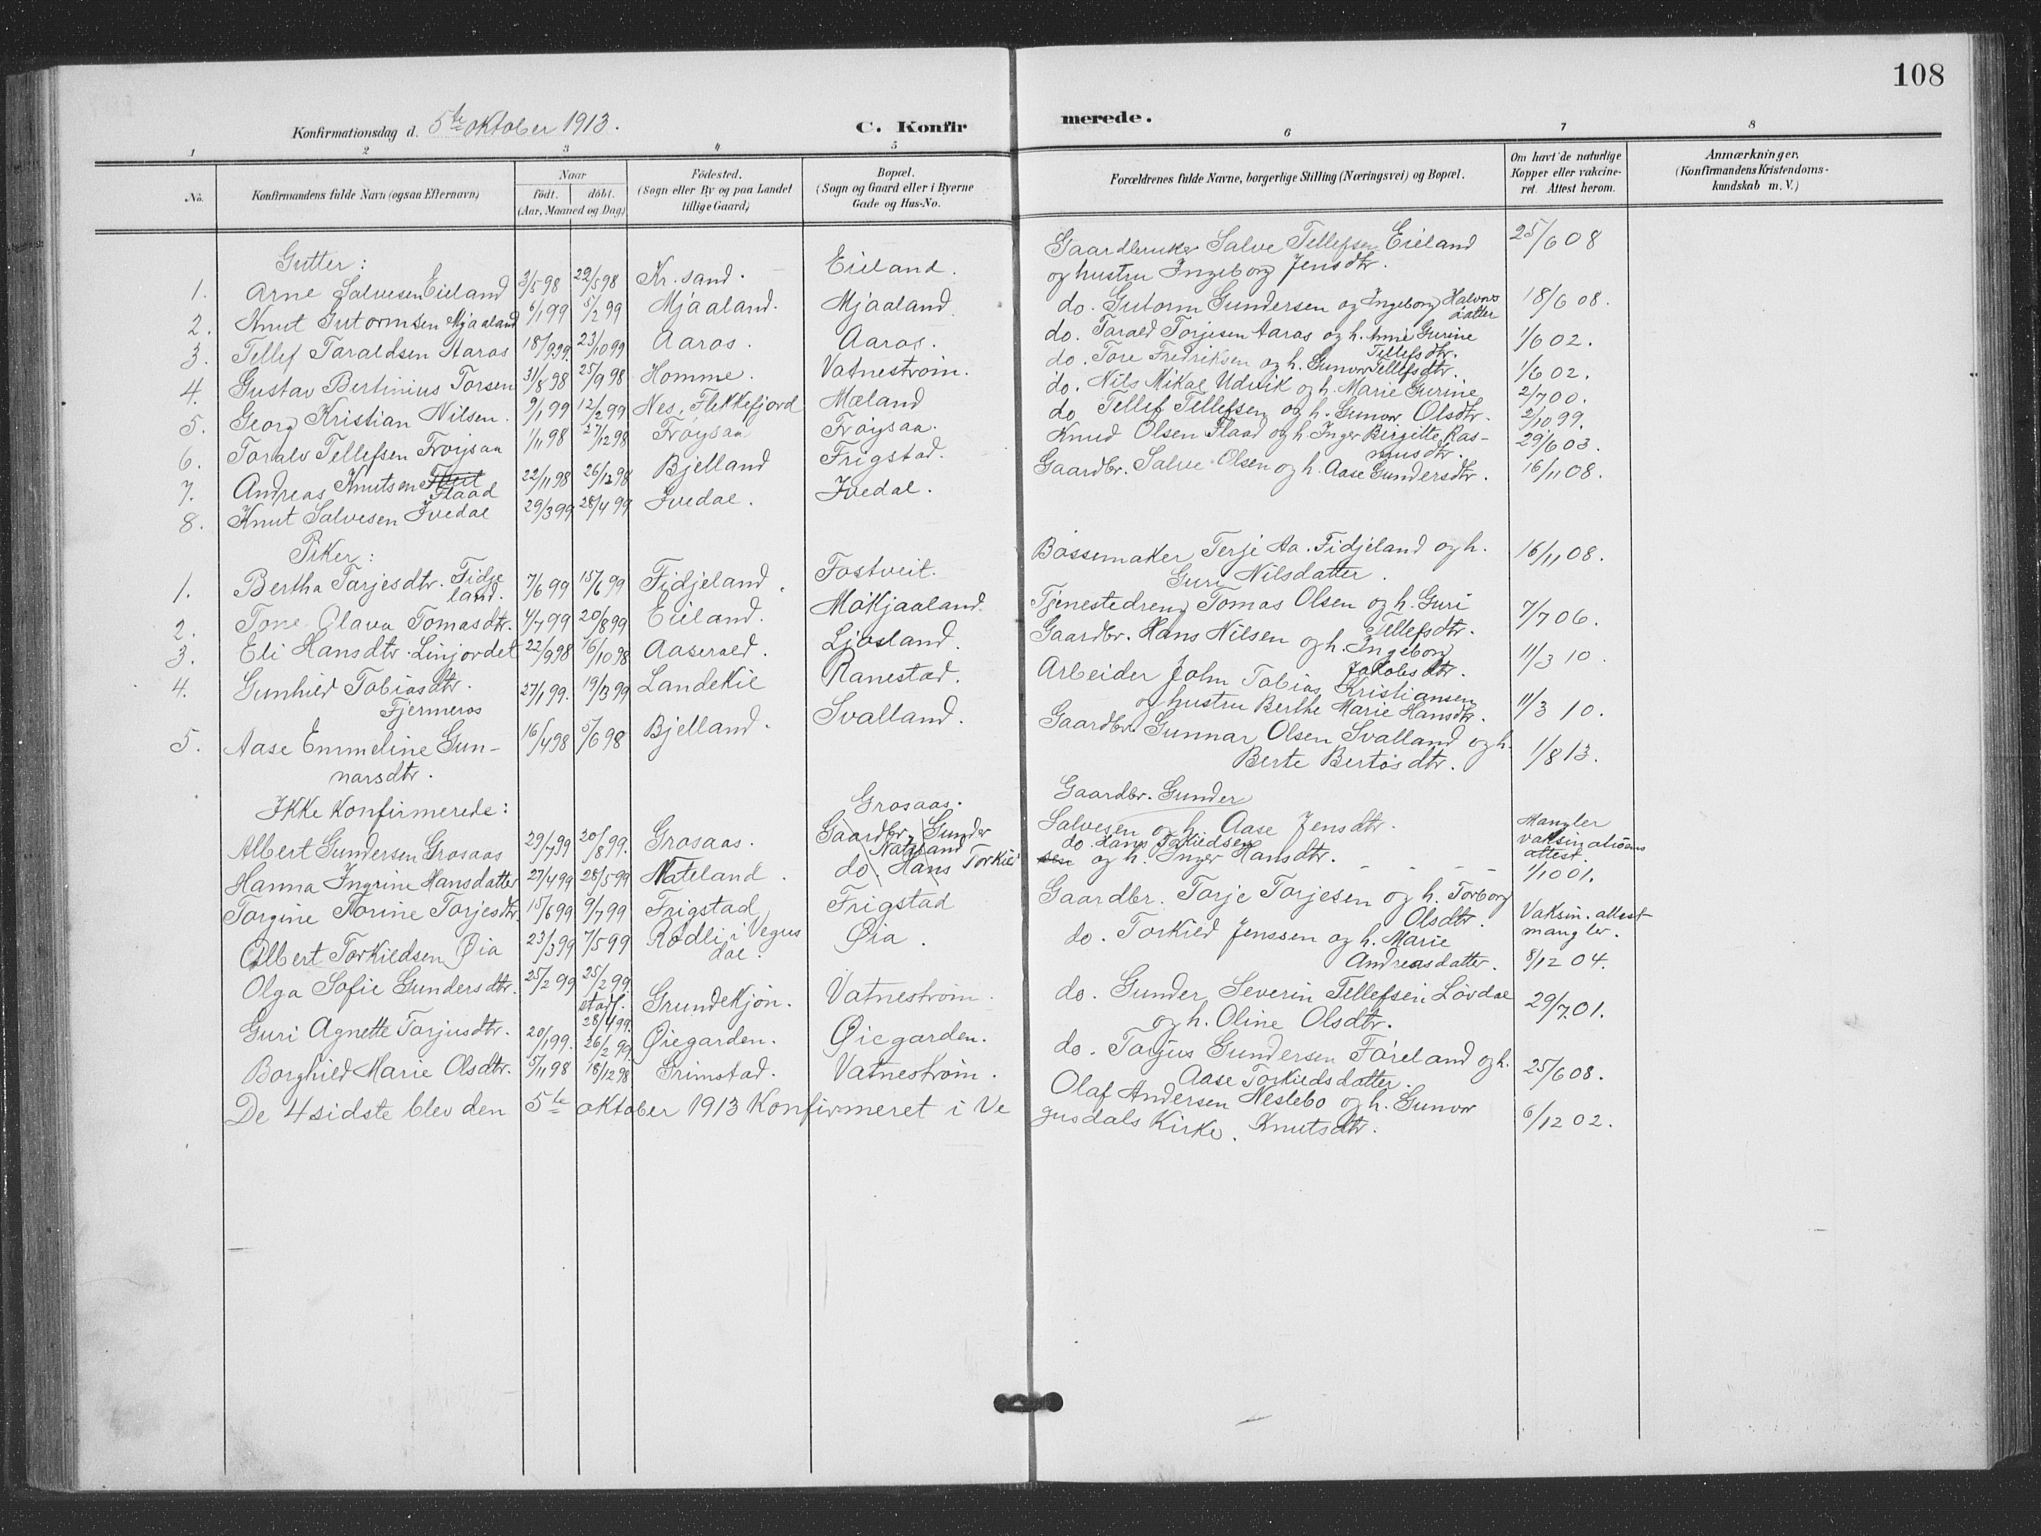 108
Konfirmationsdag d. 5te oktober 1913.
C. Konfirmerede.
1 2 3 4 5 6 7 8
No.
Konfirmandens fulde Navn (ogsaa Efternavn)
Naar
født. døbt.
(Aar, Maaned og Dag)
Fødested.
(Sogn eller By og paa Landet
tillige Gaard)
Bopæl.
(Sogn og Gaard eller i Byerne
Gade og Hus-No.
Forældrenes fulde Navne, borgerlige Stilling (Næringsvei) og Bopæl.
Om havt de naturlige
Kopper eller vakcine-
ret. Attest herom.
Anmærkninger.
(Konfirmandens Kristendoms-
kundskab m. V.)
Gutter:
1. Arne Salvesen Eieland 3/5 98 22/5 98 Kr.sand. Eieland. Gaardbruker Salve Tellefsen Eieland 25/6 08
og hustru Ingeborg Jensdtr.
2. Knut Gutormsen Mjaaland 6/1 99 5/2 99 Mjaaland. Mjaaland. do. Gutorm Gundersen og Ingeborg Halvors 18/6 08.
datter
3. Tellef Taraldsen Aaros 18/9 99. 23/10 99 Aaros. Aaros. do. Tarald Torjesen Aaros og h. Anne Gurine 1/6 02.
Tellefsdtr.
4. Gustav Bertinius Torsen 31/8 98 25/9 98 Homme. Vatnestrøm. do. Tore Fredriksen og h. Gunvor Tellefsdtr. 1/6 02.
5. Georg Kristian Nilsen. 9/1 99 12/2 99 Nes, Flekkefjord Mæland do. Nils Mikal Udvik og h. Marie Gurine 2/7 00.
6. Toralv Tellefsen Frøysaa 1/11 98 27/12 98 Frøysaa Frøysaa. do Tellef Tellefsen og h. Gunvor Olsdtr. 2/10 99.
7. Andreas Knutsen Flaad 22/11 98 26/12 98 Bjelland Frigstad. Knud Olsen Flaad og h. Inger Birgitte Ras- 29/6 03.
musdtr.
8. Knut Salvesen Ivedal 29/3 99 28/4 99 Ivedal. Ivedal. Gaardbr. Salve Olsen og h. Aase Gundersdtr. 16/11 08.
Piker:
1. Bertha Tarjesdtr. Fidje
land. 7/6 99 15/6 99 Fidjeland. Fostveit. Bøssemaker Terje Aa. Fidjeland og h. 16/11 08.
Guri Nilsdatter.
2. Tone Olava Tomasdtr. 4/7 99 20/8 99 Eieland. Mokjaaland. Tjenestedreng Tomas Olsen og h. Guri 7/7 06.
Tellefsdtr.
3. Eli Hansdtr. Linjordet 22/9 98 16/10 98 Aaserald. Ljosland. Gaardbr. Hans Nilsen og h. Ingeborg 11/3 10.
Jakobsdtr.
4. Gunhild Tobiasdtr.
Fjermeros 27/1 99. 19/3 99 Landekil Ranestad. Arbeider John Tobias Kristiansen 11/3 10.
og hustru Berthe Marie Hansdtr.
5. Aase Emmeline Gun-
narsdtr. 16/4 98 5/6 98 Bjelland. Svalland. Gaardbr. Gunnar Olsen Svalland og h. 1/8 13.
Berte Bertosdtr.
Ikke Konfirmerede:
Albert Gundersen Grosaas 29/7 99 20/8 99. Grosaas. Grosaas. Gaardbr. Gunder Gaardbr. Gunder
Salvesen og h. Aase Jensdtr. Mangler
vaksinations
attest.
Hanna Ingrine Hansdatter 27/4 99 28/5 99 Nateland. Nateland do. Hans Torkild do. Hans Torkildsen
sen og h. Inger Hansdtr. 1/10 01.
Torgine Torine Torjesdtr 15/6 99 9/7 99 Frigstad Frigstad Gaardbr. Torje Torjesen og h. Torborg
Olsdtr. Vaksin. attest
mangler.
Albert Torkildsen Øia 23/3 99 7/5 99 Rødli i Vegus
dal. Øia. do. Torkild Jenssen og h. Marie
Andreasdatter. 8/12 04.
Olga Sofie Gundersdtr. 25/2 99 25/2 99.
stadf.
28/4 99. Grundekjøn. Vatnestrøm. do. Gunder Severin Tellefsen Løvdal 29/7 01.
og h. Oline Olsdtr.
Guri Agnette Tarjusdtr. 20/1 99. 26/2 99. Øiegarden. Øiegarden. do. Tarjus Gundersen Føreland og h. 25/6 08.
Aase Torkildsdatter.
Borghild Marie Olsdtr. 5/11 98 18/12 98 Grimstad. Vatnestrøm. Olaf Andersen Neslebo og h. Gunvor 6/12 02.
Knutsdtr.
De 4 sidste blev den 5te oktober 1913 Konfirmeret i Ve
gusdals Kirke.